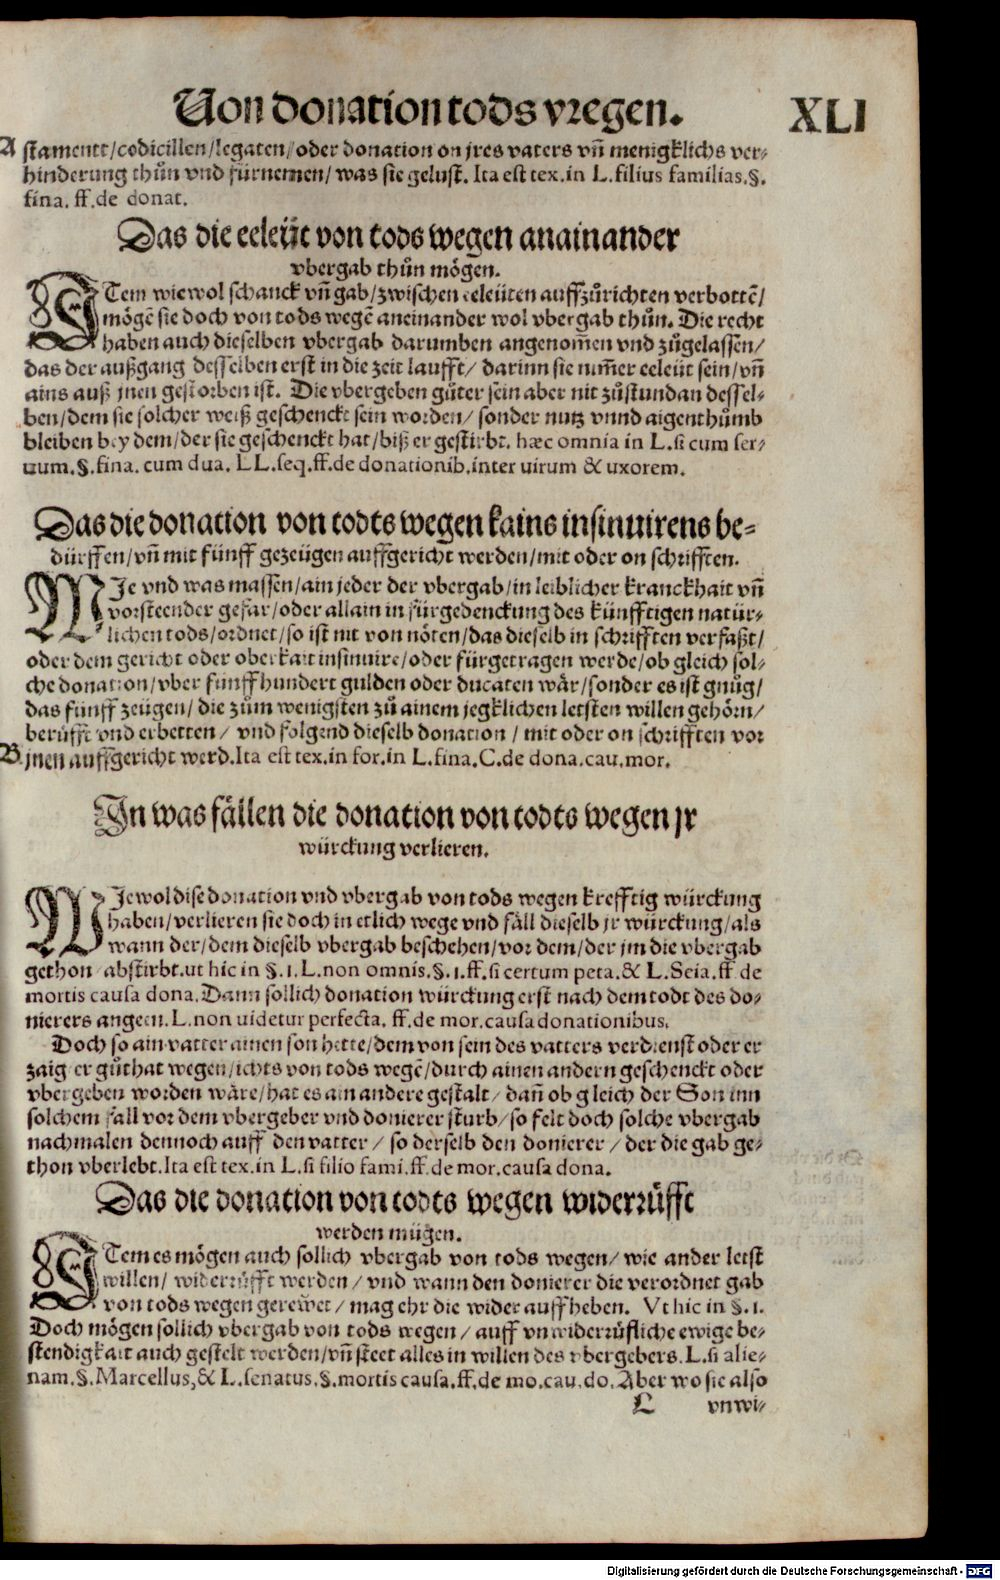 Von donation tods wegen. XLI
A stamentt/codicillen/legaten/oder donation on jres vaters vñ menigklichs ver-
hinderung thůn vnd fürnemen/was sie gelust. Ita est tex.in L.filius familias.§.
fina. ff.de donat.
Das die eeleüt von tods wegen anainander
vbergab thůn mögen.
ITem wiewol schanck vñ gab/zwischen eeleüten auffzůrichten verbottẽ/
mögẽ sie doch von tods wegẽ aneinander wol vbergab thůn. Die recht
haben auch dieselben vbergab darumben angenom̃en vnd zůgelassen/
das der außgang desselben erst in die zeit laufft/ darinn sie nim̃er eeleüt sein/vñ
ains auß jnen gestorben ist. Die vbergeben gůter sein aber nit zůstundan dessel-
ben/dem sie solcher weiß geschenckt sein worden/ sonder nutz vnnd aigenthůmb
bleiben bey dem/der sie geschenckt hat/biß er gestirbt. hæc omnia in L.si cum ser-
uum.§.fina. cum dua. LL.seq.ff.de donationib.inter uirum & uxorem.
Das die donation von todts wegen kains insinuirens be-
dürffen/vñ mit fünff gezeügen auffgericht werden/mit oder on schrifften.
WIe vnd was massen/ain jeder der vbergab/in leiblicher kranckhait vñ
vorsteender gefar/oder allain in fürgedenckung des künfftigen natür-
lichen tods/ordnet/so ist nit von nöten/das dieselb in schrifften verfaßt/
oder dem gericht oder oberkait insinuire/oder fürgetragen werde/ob gleich sol-
che donation/vber fünffhundert gulden oder ducaten wär/sonder es ist gnůg/
das fünff zeügen/die zům wenigsten zů ainem jegklichen letsten willen gehörn/
berüfft vnd erbetten/ vnd folgend dieselb donation / mit oder on schrifften vor
B jnen auffgericht werd.Ita est tex.in for.in L.fina.C.de dona.cau.mor.
In was fällen die donation von todts wegen jr
würckung verlieren.
WIewol dise donation vnd vbergab von tods wegen krefftig würckung
haben/verlieren sie doch in etlich wege vnd fäll dieselb jr würckung/als
wann der/dem dieselb vbergab beschehen/vor dem/der jm die vbergab
gethon/abstirbt.ut hic in §.1.L.non omnis.§.1.ff.si certum peta.& L.Seia.ff.de
mortis causa dona.Dann sollich donation würckung erst nach dem todt des do-
nierers angeen.L.non uidetur perfecta. ff.de mor.causa donationibus.
Doch so ain vatter ainen son hette/dem von sein des vatters verdienst oder er
zaig er gůthat wegen/ichts von tods wegẽ/durch ainen andern geschenckt oder
vbergeben worden wäre/hat es ain andere gestalt/ dañ ob gleich der Son inn
solchem fall vor dem vbergeber vnd donierer sturb/so felt doch solche vbergab
nachmalen dennoch auff den vatter / so derselb den donierer / der die gab ge-
thon vberlebt.Ita est tex.in L.si filio fami.ff.de mor.causa dona.
Das die donation von todts wegen widerrüfft
werden mügen.
ITem es mögen auch sollich vbergab von tods wegen/ wie ander letst
willen/ widerrüfft werden/ vnd wann den donierer die verordnet gab
von tods wegen gerewet/ mag ehr die wider auffheben. Vt hic in §.1.
Doch mögen sollich vbergab von tods wegen / auff vnwiderrüfliche ewige be-
stendigkait auch gestelt werden/vñ steet alles in willen des vbergebers.L.si alie-
nam.§.Marcellus,& L.senatus.§.mortis causa.ff.de mo.cau.do.Aber wo sie also
L vnwi-
Digitalisierung gefördert durch die Deutsche Forschungsgemeinschaft - DFG